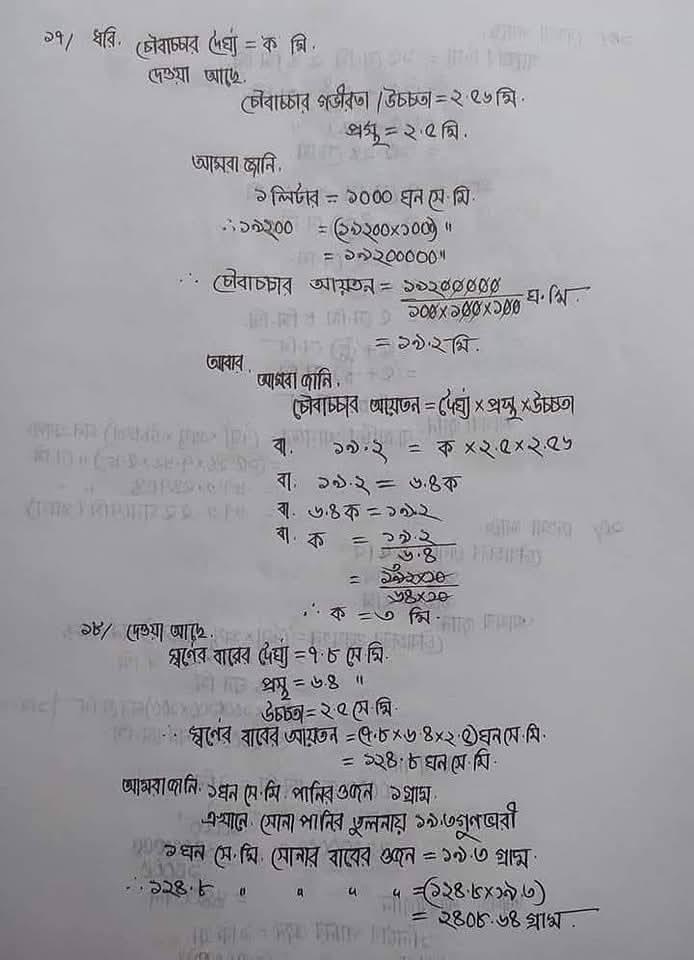 ১৭/ ধরি, চৌবাচ্চার দৈর্ঘ্য = ক মি.
দেওয়া আছে,
চৌবাচ্চার গভীরতা / উচ্চতা = ২.৫৬ মি.
প্রস্থ = ২.৫ মি.
আমরা জানি,
১ লিটার = ১০০০ ঘন সে.মি.
∴ ১৯২০০ = (১৯২০০×১০০০) "
= ১৯২০০০০০ "
∴ চৌবাচ্চার আয়তন = ১৯২০০০০০ / ১০০×১০০×১০০ ঘ. মি.
= ১৯.২ মি.
আবার,
আমরা জানি,
চৌবাচ্চার আয়তন = দৈর্ঘ্য × প্রস্থ × উচ্চতা
বা, ১৯.২ = ক × ২.৫ × ২.৫৬
বা, ১৯.২ = ৬.৪ক
বা, ৬.৪ক = ১৯.২
বা, ক = ১৯.২ / ৬.৪
= ১৯২×১০ / ৬৪×১০
∴ ক = ৩ মি
১৮/ দেওয়া আছে,
স্বর্ণের বারের দৈর্ঘ্য = ৭.৮ সে.মি.
প্রস্থ = ৬.৪ "
উচ্চতা = ২.৫ সে.মি.
∴ স্বর্ণের বারের আয়তন = (৭.৮×৬.৪×২.৫) ঘন সে.মি.
= ১২৪.৮ ঘন সে.মি.
আমরা জানি, ১ ঘন সে.মি. পানির ওজন ১ গ্রাম.
এখানে, সোনা পানির তুলনায় ১৯.৩ গুণ ভারী
১ ঘন সে.মি. সোনার বারের ওজন = ১৯.৩ গ্রাম.
∴ ১২৪.৮ " " " " = (১২৪.৮×১৯.৩)
= ২৪০৮.৬৪ গ্রাম.